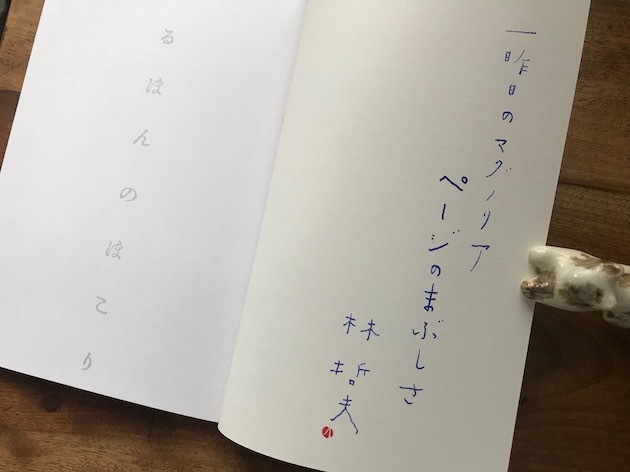 一昨日のマグノリア
ページのまぶしさ
林哲夫
るほんのほこり